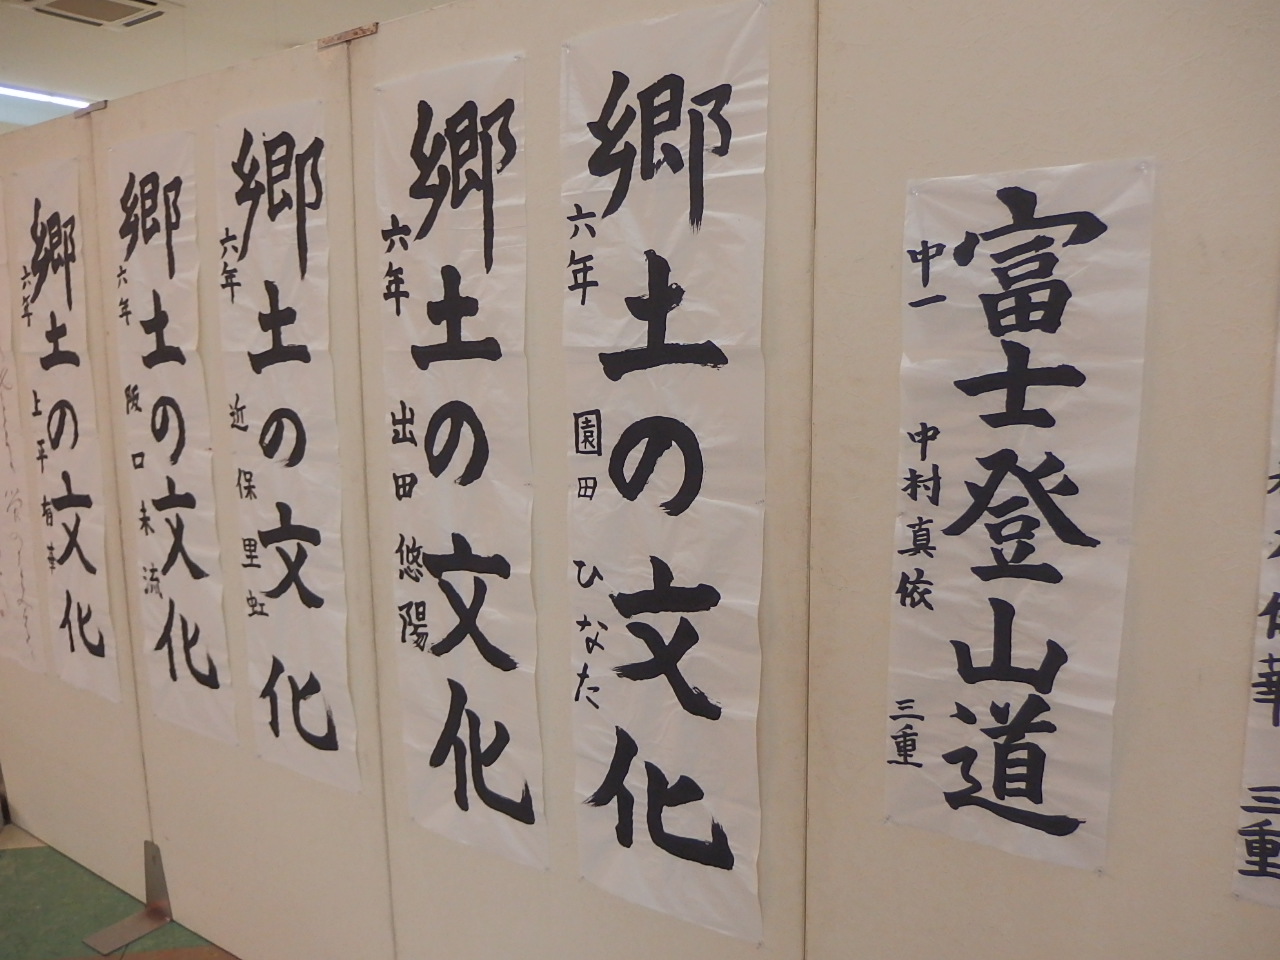 富士登山道
中一 中村真依 三重
郷土の文化
六年 園田ひなた
郷土の文化
六年 出田悠陽
郷土の文化
六年 近保里虹
郷土の文化
六年 阪口未流
郷土の文化
六年 上平有華
華 三重